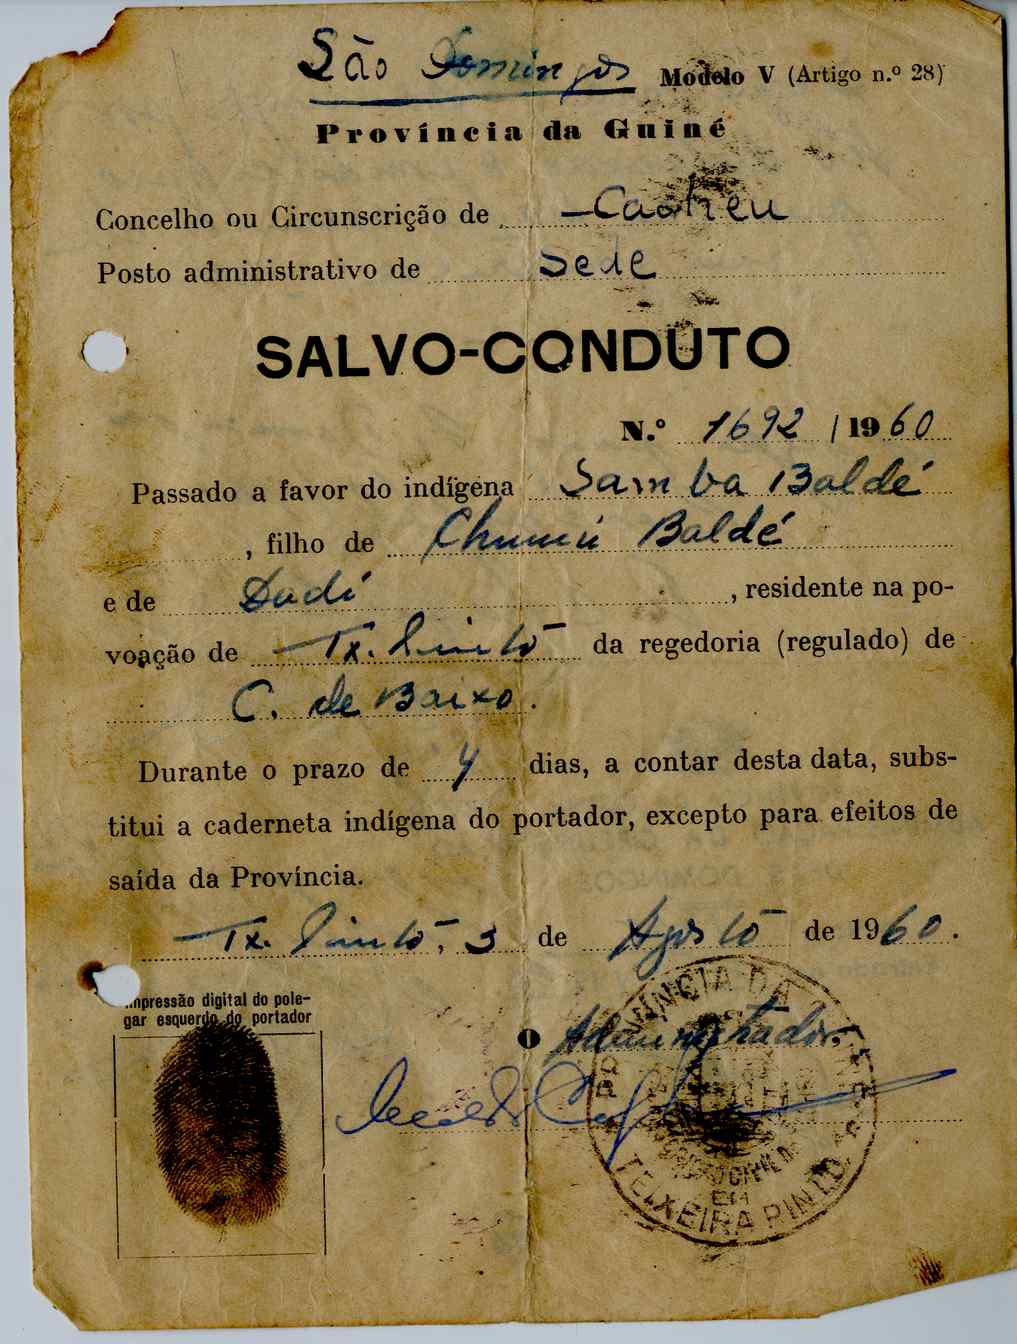 São Domingos Modelo V (Artigo n.º 28)
Província da Guiné
Concelho ou Circunscrição de Cacheu
Posto administrativo de Sede
SALVO-CONDUTO
N.º 1692 / 1960
Passado a favor do indígena Samba Baldé
, filho de Baldé
e de Dadi , residente na po-
voação de Tx. Pinto da regedoria (regulado) de
C. de Baixo.
Durante o prazo de 4 dias, a contar desta data, subs-
titui a caderneta indígena do portador, excepto para efeitos de
saída da Província.
Tx. Pinto, 3 de Agosto de 1960.
Impressão digital do pole-
gar esquerdo do portador
O Administrador.
PROVÍNCIA DA GUINÉ
EM
TEIXEIRA PINTO